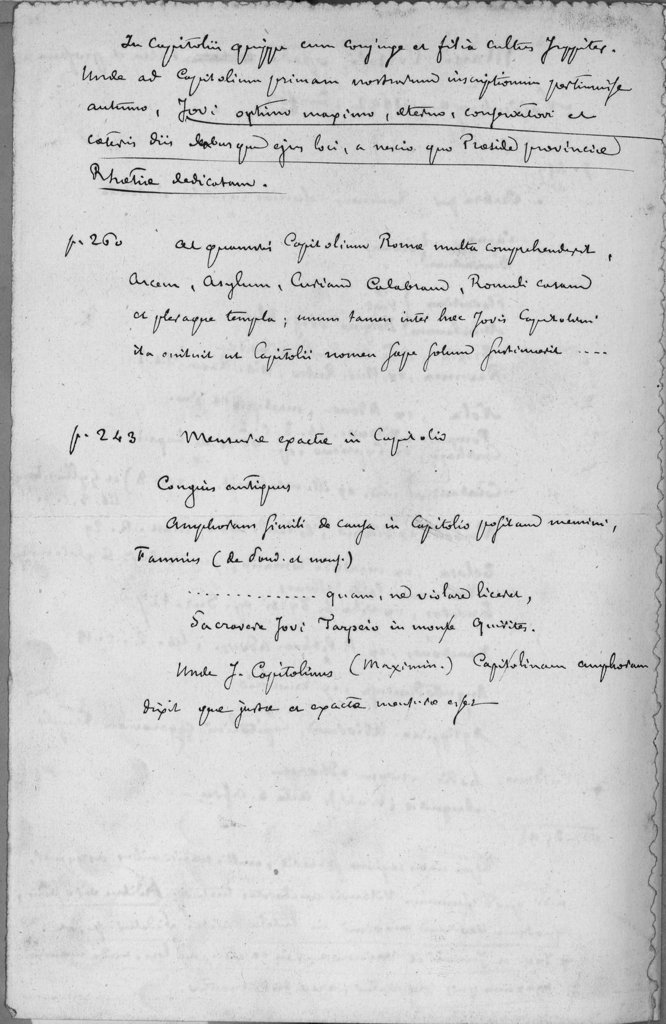 In Capitoliis quippe cum conjuge et filia cultus Juppiter.
Unde ad Capitolium primam nostrarum inscriptionum pertinuisse
autumo, Jovi optimo maximo, aeterno, conservatori et
caeteris diis deabusque ejus loci, a nescio quo Praeside provinciae
Rhaetiae dedicatam.
p. 260 At quamvis Capitolium Romae multa comprehenderet,
Arcem, Asylum, Curiam Calabram, Romuli casam
et pleraque templa; unum tamen inter haec Jovis Capitolini
ita enituit ut Capitolii nomen saepe solum sustinuerit ....
p. 243 Mensurae exactae in Capitolio
Congius antiquus
Amphoram simili de causa in Capitolio positam memini,
Fannius (de pond. et mens.)
.............. quam, ne violare liceret,
Sacravere Jovi Tarpeio in monte Quirites.
Unde J. Capitolinus (Maximin.) Capitolinam amphoram
dixit quae justae et exactae mensurae esset